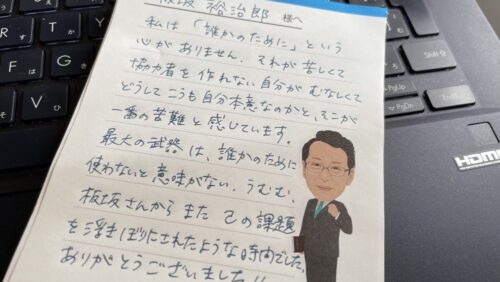 板坂 裕治郎 様へ
私は「誰かのために」という
心がありません。それが苦しくて
協力者を作れない自分が むなしくて
どうしてこうも自分本意なのかと、そこが
一番の苦難と感じています。
最大の武器は、誰かのために
使わないと意味がない。うむむ、
板坂さんから また 己の課題
を浮きぼりにされたような時間でした。
ありがとうございました!!
PgDn
HDMI